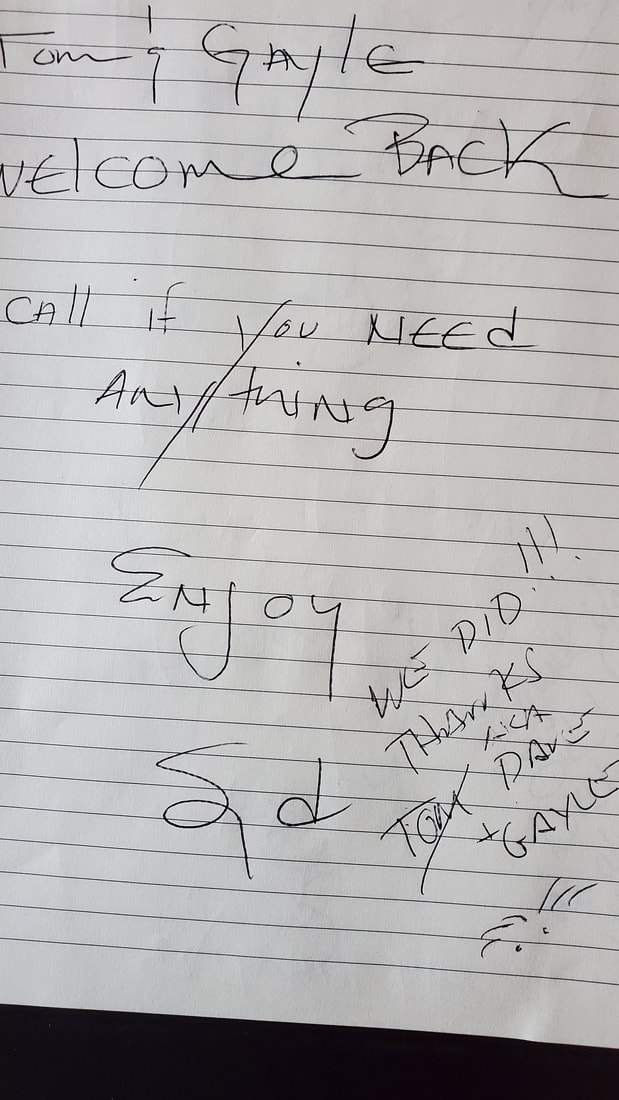 Tom & GAylE
WElcomE BACK
CAll if You NEEd
ANything
ENJoy
Ed
WE DID!!!
THANKS
AKA
TOM DAVE
+GAYLE
!!!